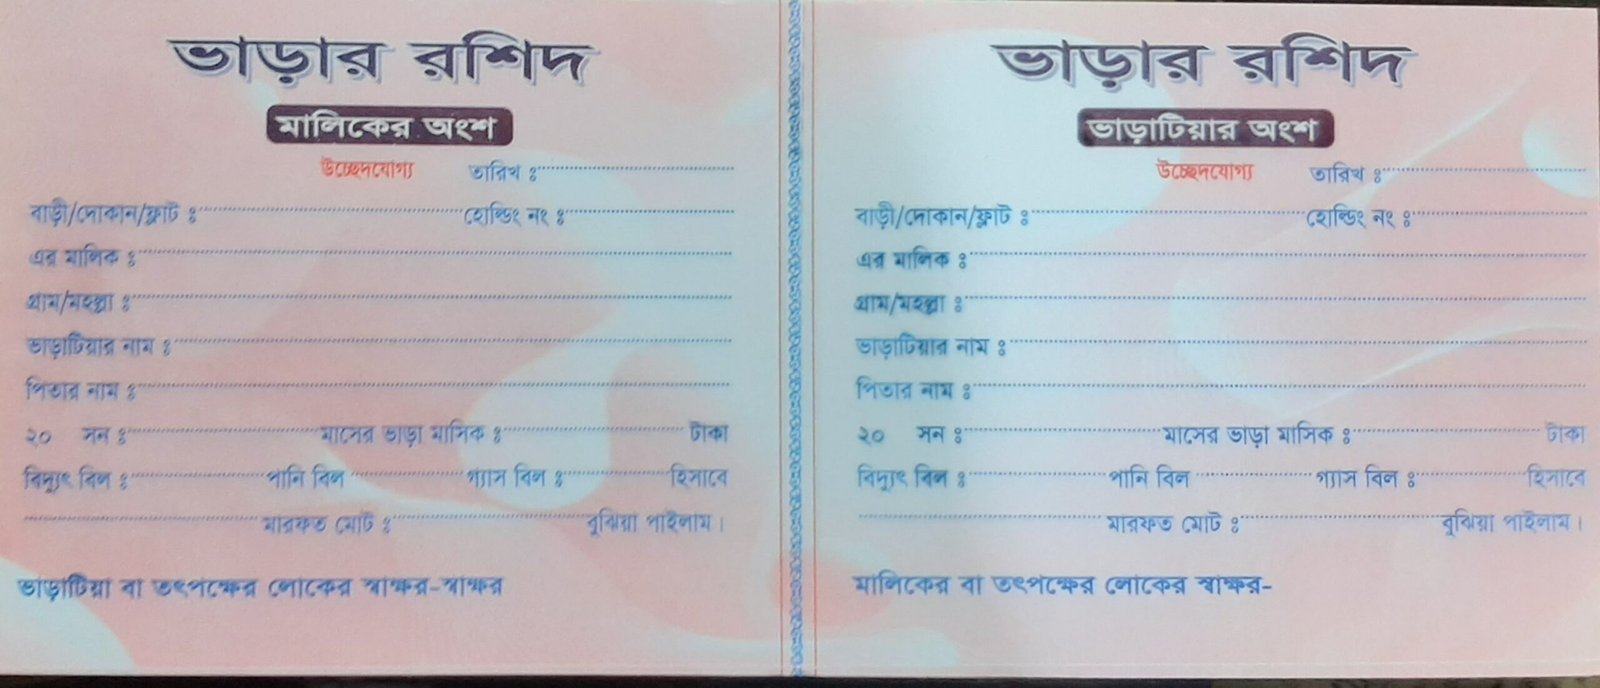 ভাড়ার রশিদ
মালিকের অংশ
উচ্ছেদযোগ্য তারিখ ঃ
বাড়ী/দোকান/ফ্লাট ঃ হোল্ডিং নং ঃ
এর মালিক ঃ
গ্রাম/মহল্লা ঃ
ভাড়াটিয়ার নাম ঃ
পিতার নাম ঃ
২০ সন ঃ মাসের ভাড়া মাসিক ঃ টাকা
বিদ্যুৎ বিল ঃ পানি বিল গ্যাস বিল ঃ হিসাবে
মারফত মোট ঃ বুঝিয়া পাইলাম।
ভাড়াটিয়া বা তৎপক্ষের লোকের স্বাক্ষর-স্বাক্ষর
ভাড়ার রশিদ
ভাড়াটিয়ার অংশ
উচ্ছেদযোগ্য তারিখ ঃ
বাড়ী/দোকান/ফ্লাট ঃ হোল্ডিং নং ঃ
এর মালিক ঃ
গ্রাম/মহল্লা ঃ
ভাড়াটিয়ার নাম ঃ
পিতার নাম ঃ
২০ সন ঃ মাসের ভাড়া মাসিক ঃ টাকা
বিদ্যুৎ বিল ঃ পানি বিল গ্যাস বিল ঃ হিসাবে
মারফত মোট ঃ বুঝিয়া পাইলাম।
মালিকের বা তৎপক্ষের লোকের স্বাক্ষর-